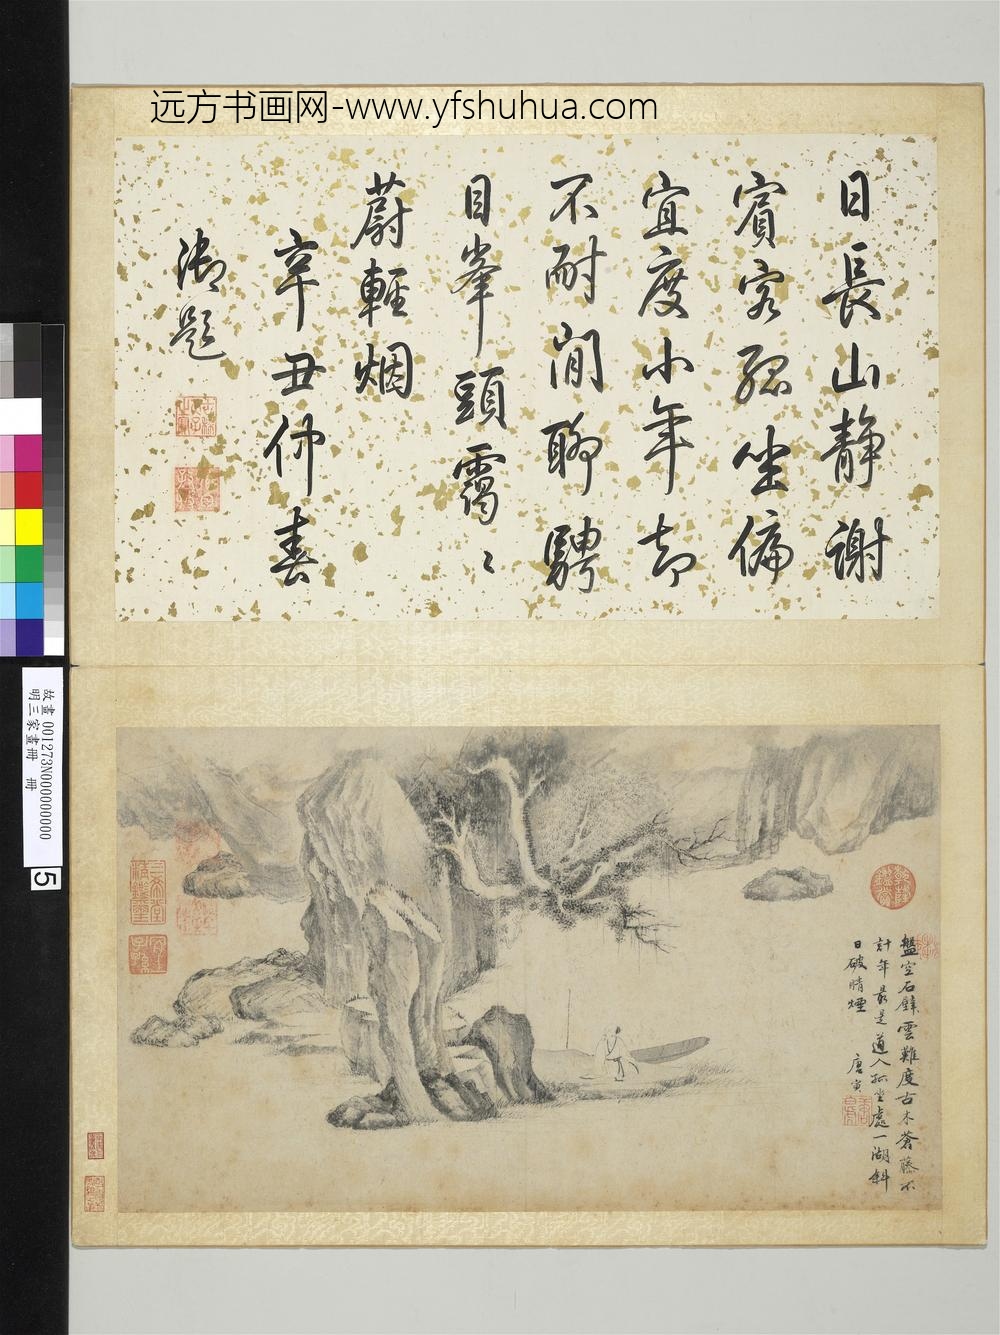 远方书画网-www.yfshuhua.com
日長山静謝
賓客孤坐偏
宜度小年却
不耐閒聊騁
目峯頭靄〻
蔚輕烟
辛丑仲春
御題
故畫 001273N000000000
明三家畫冊 冊
5
盤空石壁雲難度古木蒼藤不
計年最是道人孤坐處一湖斜
日破晴煙
唐寅